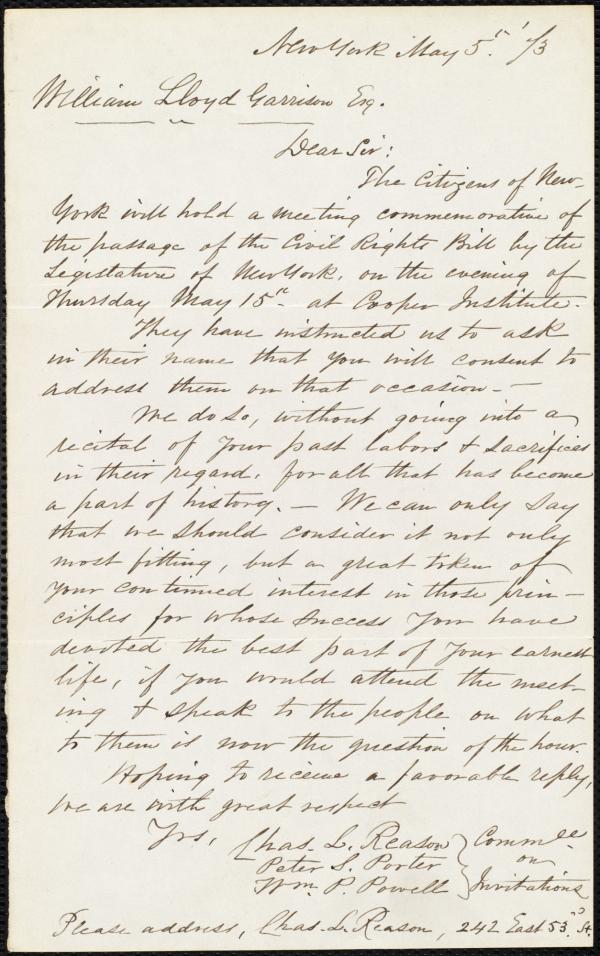 New York May 5th '73
William Lloyd Garrison Esq.
Dear Sir:
The Citizens of New-
York will hold a meeting commemorative of
the passage of the Civil Rights Bill by the
Legislature of New York, on the evening of
Thursday May 15th at Cooper Institute.
They have instructed us to ask
in their name that you will consent to
address them on that occasion. —
We do so, without going into a
recital of your past labors & sacrifices
in their regard, for all that has become
a part of history. — We can only say
that we should consider it not only
most fitting, but a great token of
your continued interest in those prin-
ciples for whose success you have
devoted the best part of your earnest
life, if you would attend the meet-
ing & speak to the people on what
to them is now the question of the hour.
Hoping to receive a favorable reply,
we are with great respect
Yrs, Chas. L. Reason } Commee
Peter S. Porter } on
Wm. P. Powell } Invitations
Please address, Chas. L. Reason, 242 East 53d. St.